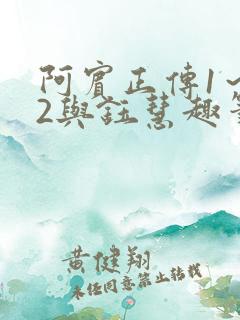 阿賓正傳1~
2與鈺慧趣事
黄健翔
未经同意禁止转载